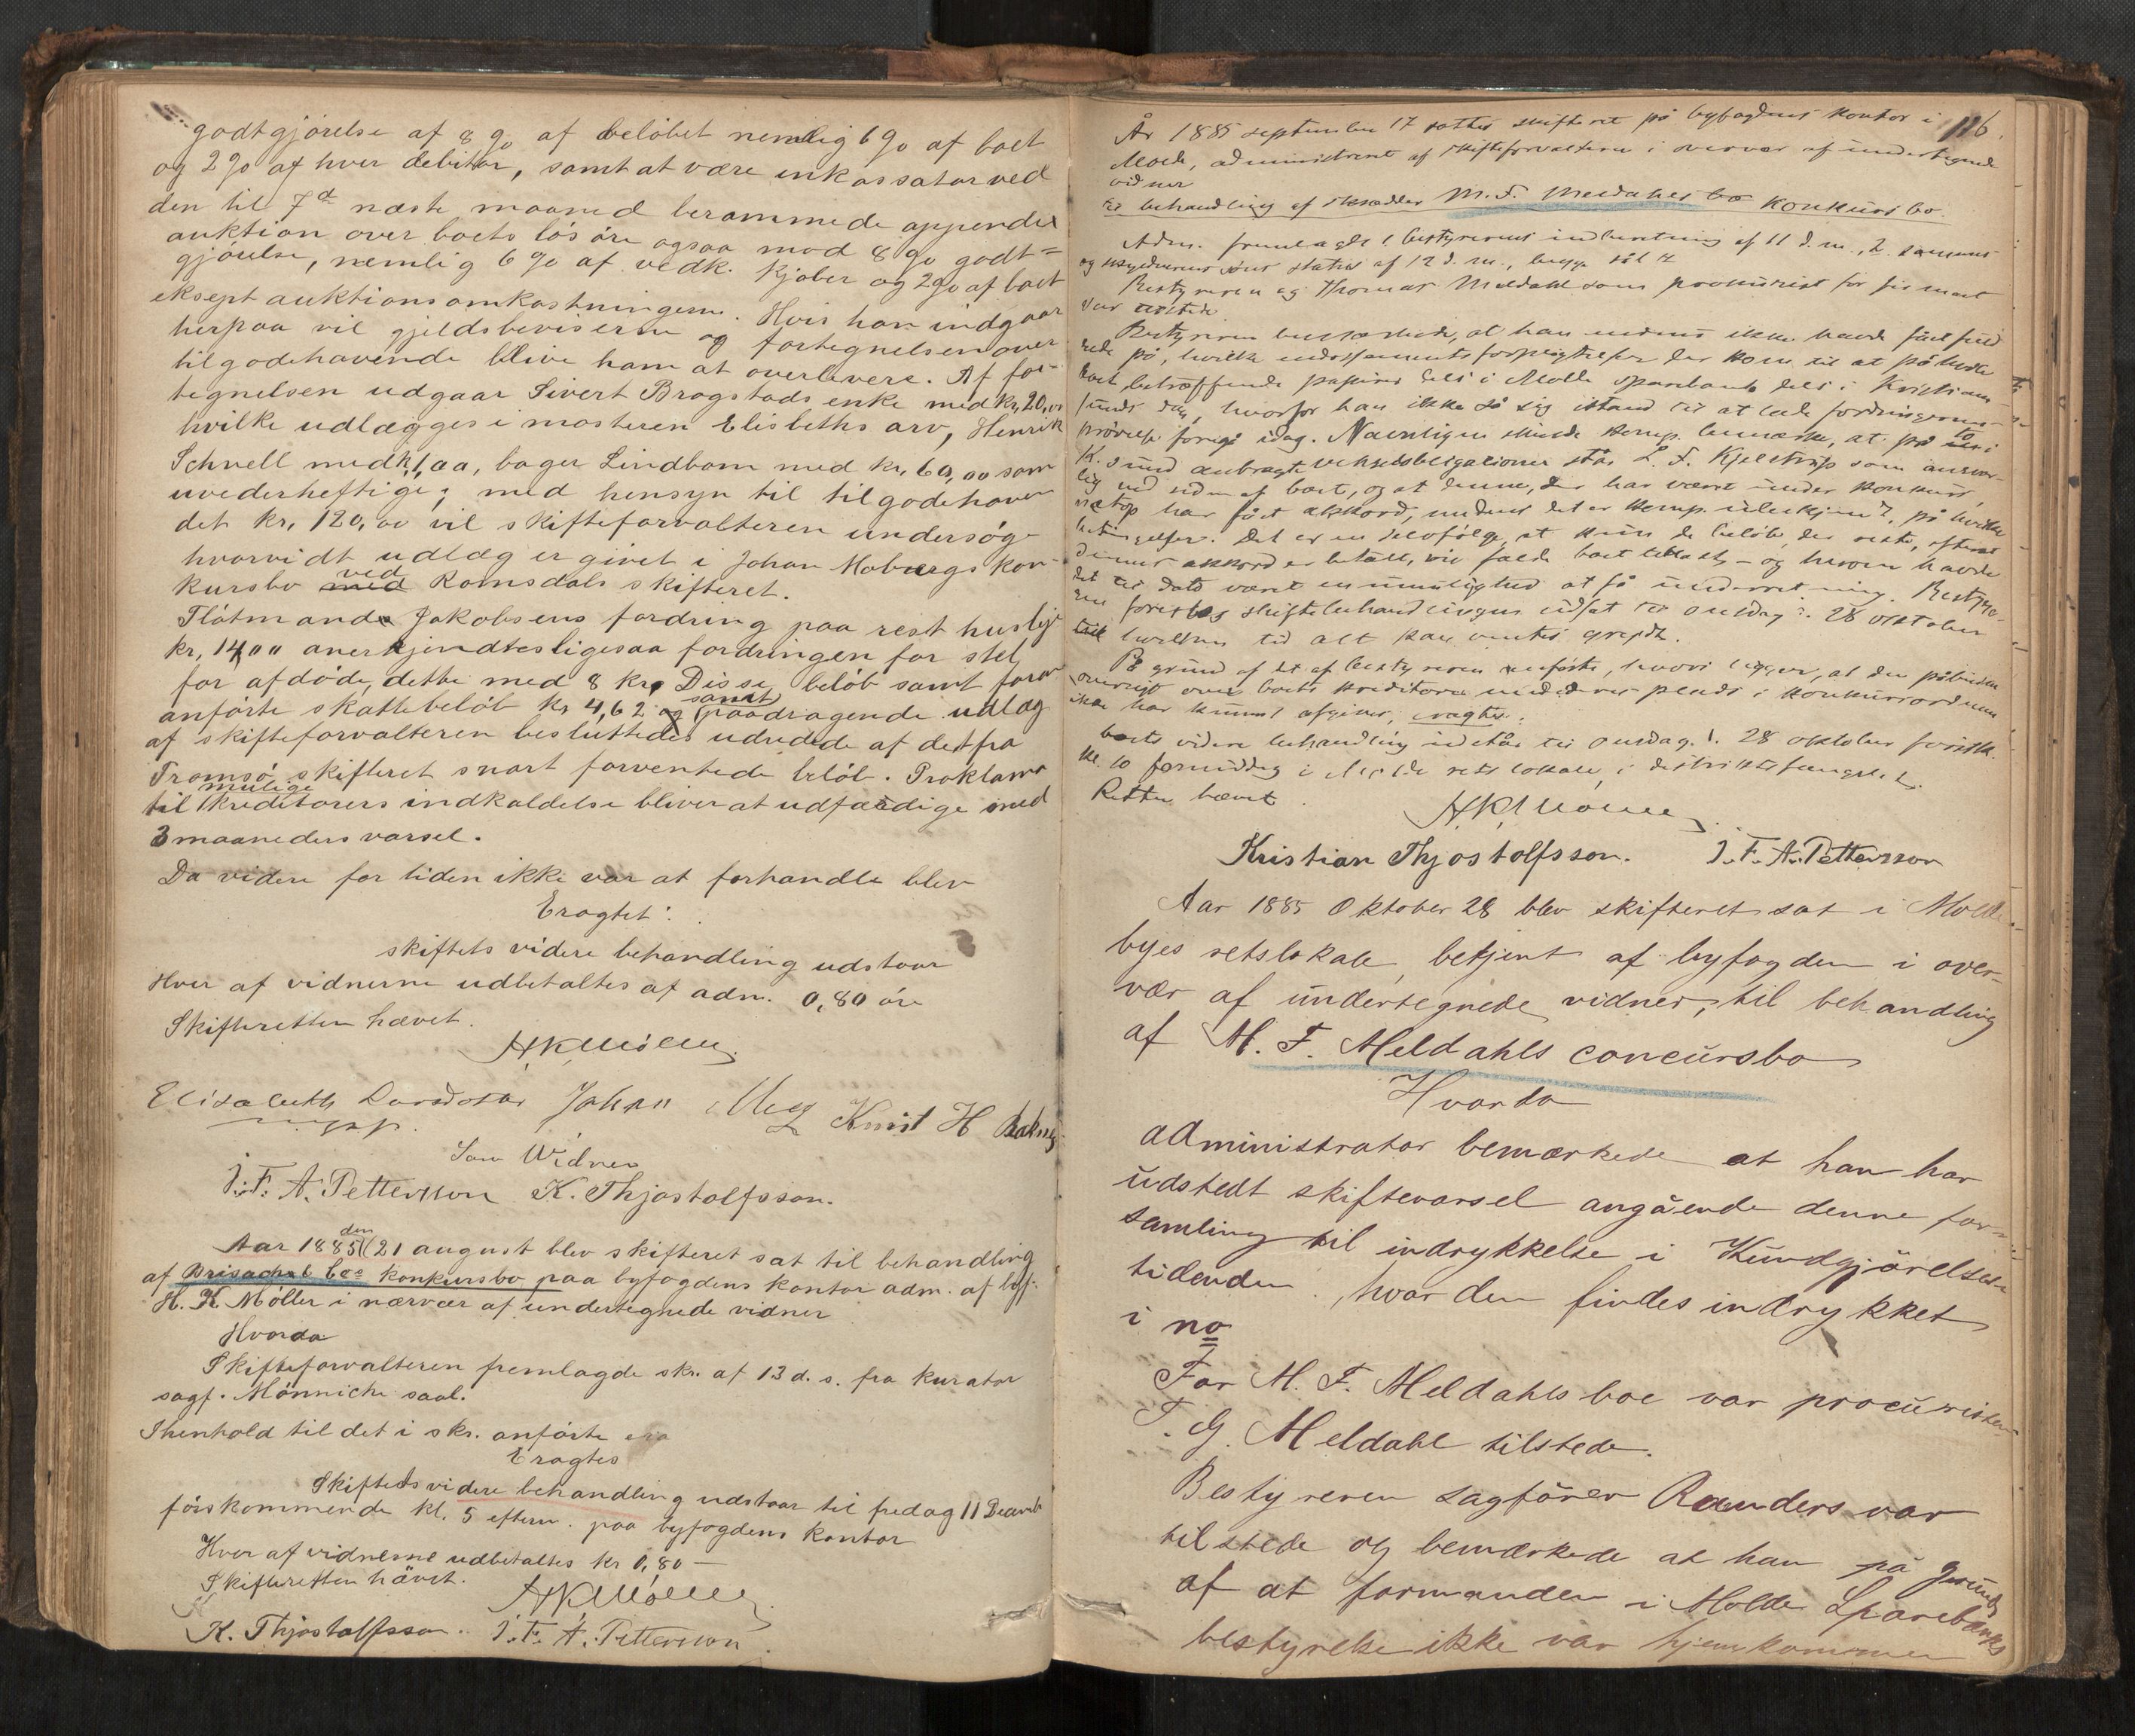 godtgjörelse af 8 % af belöbet nemlig 6 % af boet
og 2 % af hver debitor, samt at være inkassator ved
den til 7de næste maaned berammede
auktion over boets lösöre ogsaa mod 8 % godt=
gjörelse, nemlig 6 % af vedk. kjöber og 2 % af boet
eksept auktionsomkostningerne. Hvis han indgaar
herpaa vil gjeldsbeviserne og fortegnelsen over
tilgodehavende blive ham at overlevere. Af for-
tegnelsen udgaar Sivert Brogstads enke med kr. 20,00
hvilke udlægges i mosteren Elisbeths arv, Henrik
Schnell med k 1,00, bager Lindbom med kr. 60,00 som
uvederheftige; med hensyn til tilgodehaven
det kr. 120,00 vil skifteforvalteren undersöge
hvorvidt udlæg er givet i Johan Mobergs kon-
kursbo ved Romsdals skifteret.
Flötmand Jakobsens fordring paa rest husleje
kr. 14,00 anerkjendtes ligesaa fordringen for stel
for afdöde, dette med 8 kr. Disse belöb samt foran
anförte skattebelöb kr 4,62 samt paadragende udlæg
af skifteforvalteren besluttedes udredede af det fra
Tromsö skifteret snart forventede belöb. Proklama
til mulige kreditorers indkaldelse bliver at udfærdige med
3 maaneders varsel.
Da videre for tiden ikke var at forhandle blev
Eragtet:
skiftets videre behandling udstaar
Hver af vidnerne udbetaltes af adm. 0,80 öre
Skifteretten hævet.
HKMöller
Elisabeth Johan Knut H
Som Vidner
J. F. A. Petterson K. Thjostolfsson.
Aar 1885 den 21 august blev skifteret sat til behandling
af konkursbo paa byfogdens kontor adm. af byf.
H. K. Möller i nærvær af undertegnede vidner
Hvorda
Skifteforvalteren fremlagde skr. af 13 d. s. fra kurator
sagf. Mönniche saal.
I henhold til det i skr. anförte
Eragtes
Skiftets videre behandling udstaar til fredag 11 Decemb
förstkommende kl. 5 efterm. paa byfogdens kontor
Hver af vidnerne udbetaltes kr 0,80 —
Skifteretten hævet.
HKMöller
K. Thjostolfsson. J. F. A. Petterson.
116.
År 1885 september 17 sattes skifteret på byfogdens kontor i
Molde, administreret af skifteforvalteren i overvær af undertegnede
vidner
til behandling af M. F. Meldahls konkursbo.
Adm. fremlagde 1 bestyrerens indberetning af 11 d. m., 2
status af 12 d. m., begge
Bestyreren og Thomas Meldahl som prokurist for firmaet
var tilstede.
Bestyreren bemærkede, at han endnu ikke havde fået fuld
rede på, hvilke endossementsforpligtelser der kom til at påhvile
boet betræffende papirer dels i Molde sparebank dels i Kristian
sunds do, hvorfor han ikke så sig istand til at lade fordringernes
prövelse foregå idag. Navnligen skulde komp. bemærke, at på to i
K.sund anbragte vekselobligationer står L. F. Kjelstrup som ansvar-
lig ved siden af boet, og at denne, der har været under konkurs,
netop har fået akkord, endnu det er komp. ubekjendt, på hvilke
betingelser. Det er en selvfölge, at kun de belöb, der reste, efterat
dennes akkord er betalt, vil falde boet tillast – og herom havde
det til dato været en umulighed at få underretning. Bestyre-
ren foreslog skiftebehandlingen udsat til onsdag d. 28 oktober
til hvilken tid alt kan ventes greidt.
På grund af det af bestyreren anförte, hvori ligger, at den påbudne
oversigt over boets kreditorer med deres plads i konkursordenen
ikke har kunnet afgives, eragtes:
boets videre behandling udstår til onsdag d. 28 oktober förstk.
kl. 10 formiddag i Molde retslokale i distriktsfængslet.
Retten hævet.
HKMöller
Kristian Thjostolfsson. J. F. A. Petterson
Aar 1885 Oktober 28 blev skifteret sat i Molde
byes retslokale, betjent af byfogden i over-
vær af undertegnede vidner, til behandling
af M. F. Meldahls concursbo
Hvorda
administrator bemærkede at han har
udstedt skiftevarsel angående denne for-
samling til indrykkelse i Kundgjörelses
tidenden, hvor den findes indrykket
i no
For M. F. Meldahls boe var procuristen
T. G. Meldahl tilstede.
Bestyreren sagförer Randers var
tilstede og bemærkede at han på grund
af at formanden i Molde Sparebanks
bestyrelse ikke var hjemkommen